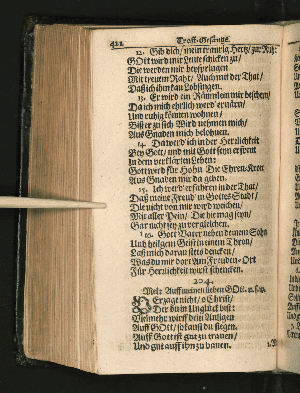 422 Trost-Gesänge.
12. Gib dich/ mein traurig Hertz/ zur Ruh:
GOtt wird mir Leute schicken zu/
Die werden mir beyspringen
Mit treuem Raht/ Auch mit der That/
Daß ich ihm kan Lobsingen.
13. Er wird ein Räumlein mir beschern/
Da ich mich ehrlich werd ernärn/
Und ruhig können wohnen/
Biß er zu sich Wird nehmen mich/
Aus Gnaden mich belohnen.
14. Da werd ich in der Herrlichkeit
Bey Gott/ und mit Gott seyn erfreut
In dem verklärten Leben:
Gott wird für Hohn Die Ehren-Kron
Aus Gnaden mir da geben.
15. Ich werd erfahren in der That/
Daß meine Freud in Gottes Stadt/
Die nicht von mir wird weichen/
Mit aller Pein/ Die hie mag seyn/
Gar nicht sey zu vergleichen.
16. Gott Vater neben deinem Sohn
Und heilgem Geist in einem Thron/
Laß mich daran stets dencken/
Was du mir dort Am Freuden-Ort
Für Herrlichkeit wirst schencken.
204.
Mel: Auff meinen lieben GOtt. u.s.w.
VErzage nicht/ o Christ/
Der du in Unglück bist:
Vielmehr wirff dein Anligen
Auff GOtt/ so kanst du siegen.
Auff Gott ist gut zu trauen/
Und gut auff ihn zu bauen.